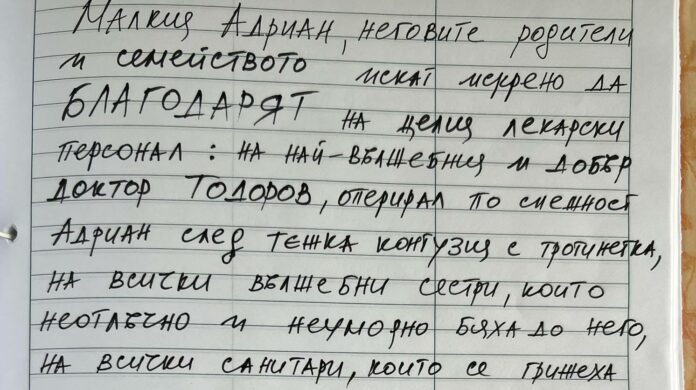 Малкия Адриан, неговите родители
и семейството искат искрено да
БЛАГОДАРЯТ на целия лекарски
персонал: на най-вълшебния и добър
доктор Тодоров, оперирал по спешност
Адриан след тежка контузия с тротинетка,
на всички вълшебни сестри, които
неотлъчно и неуморно бяха до него,
на всички санитари, които се грижеха